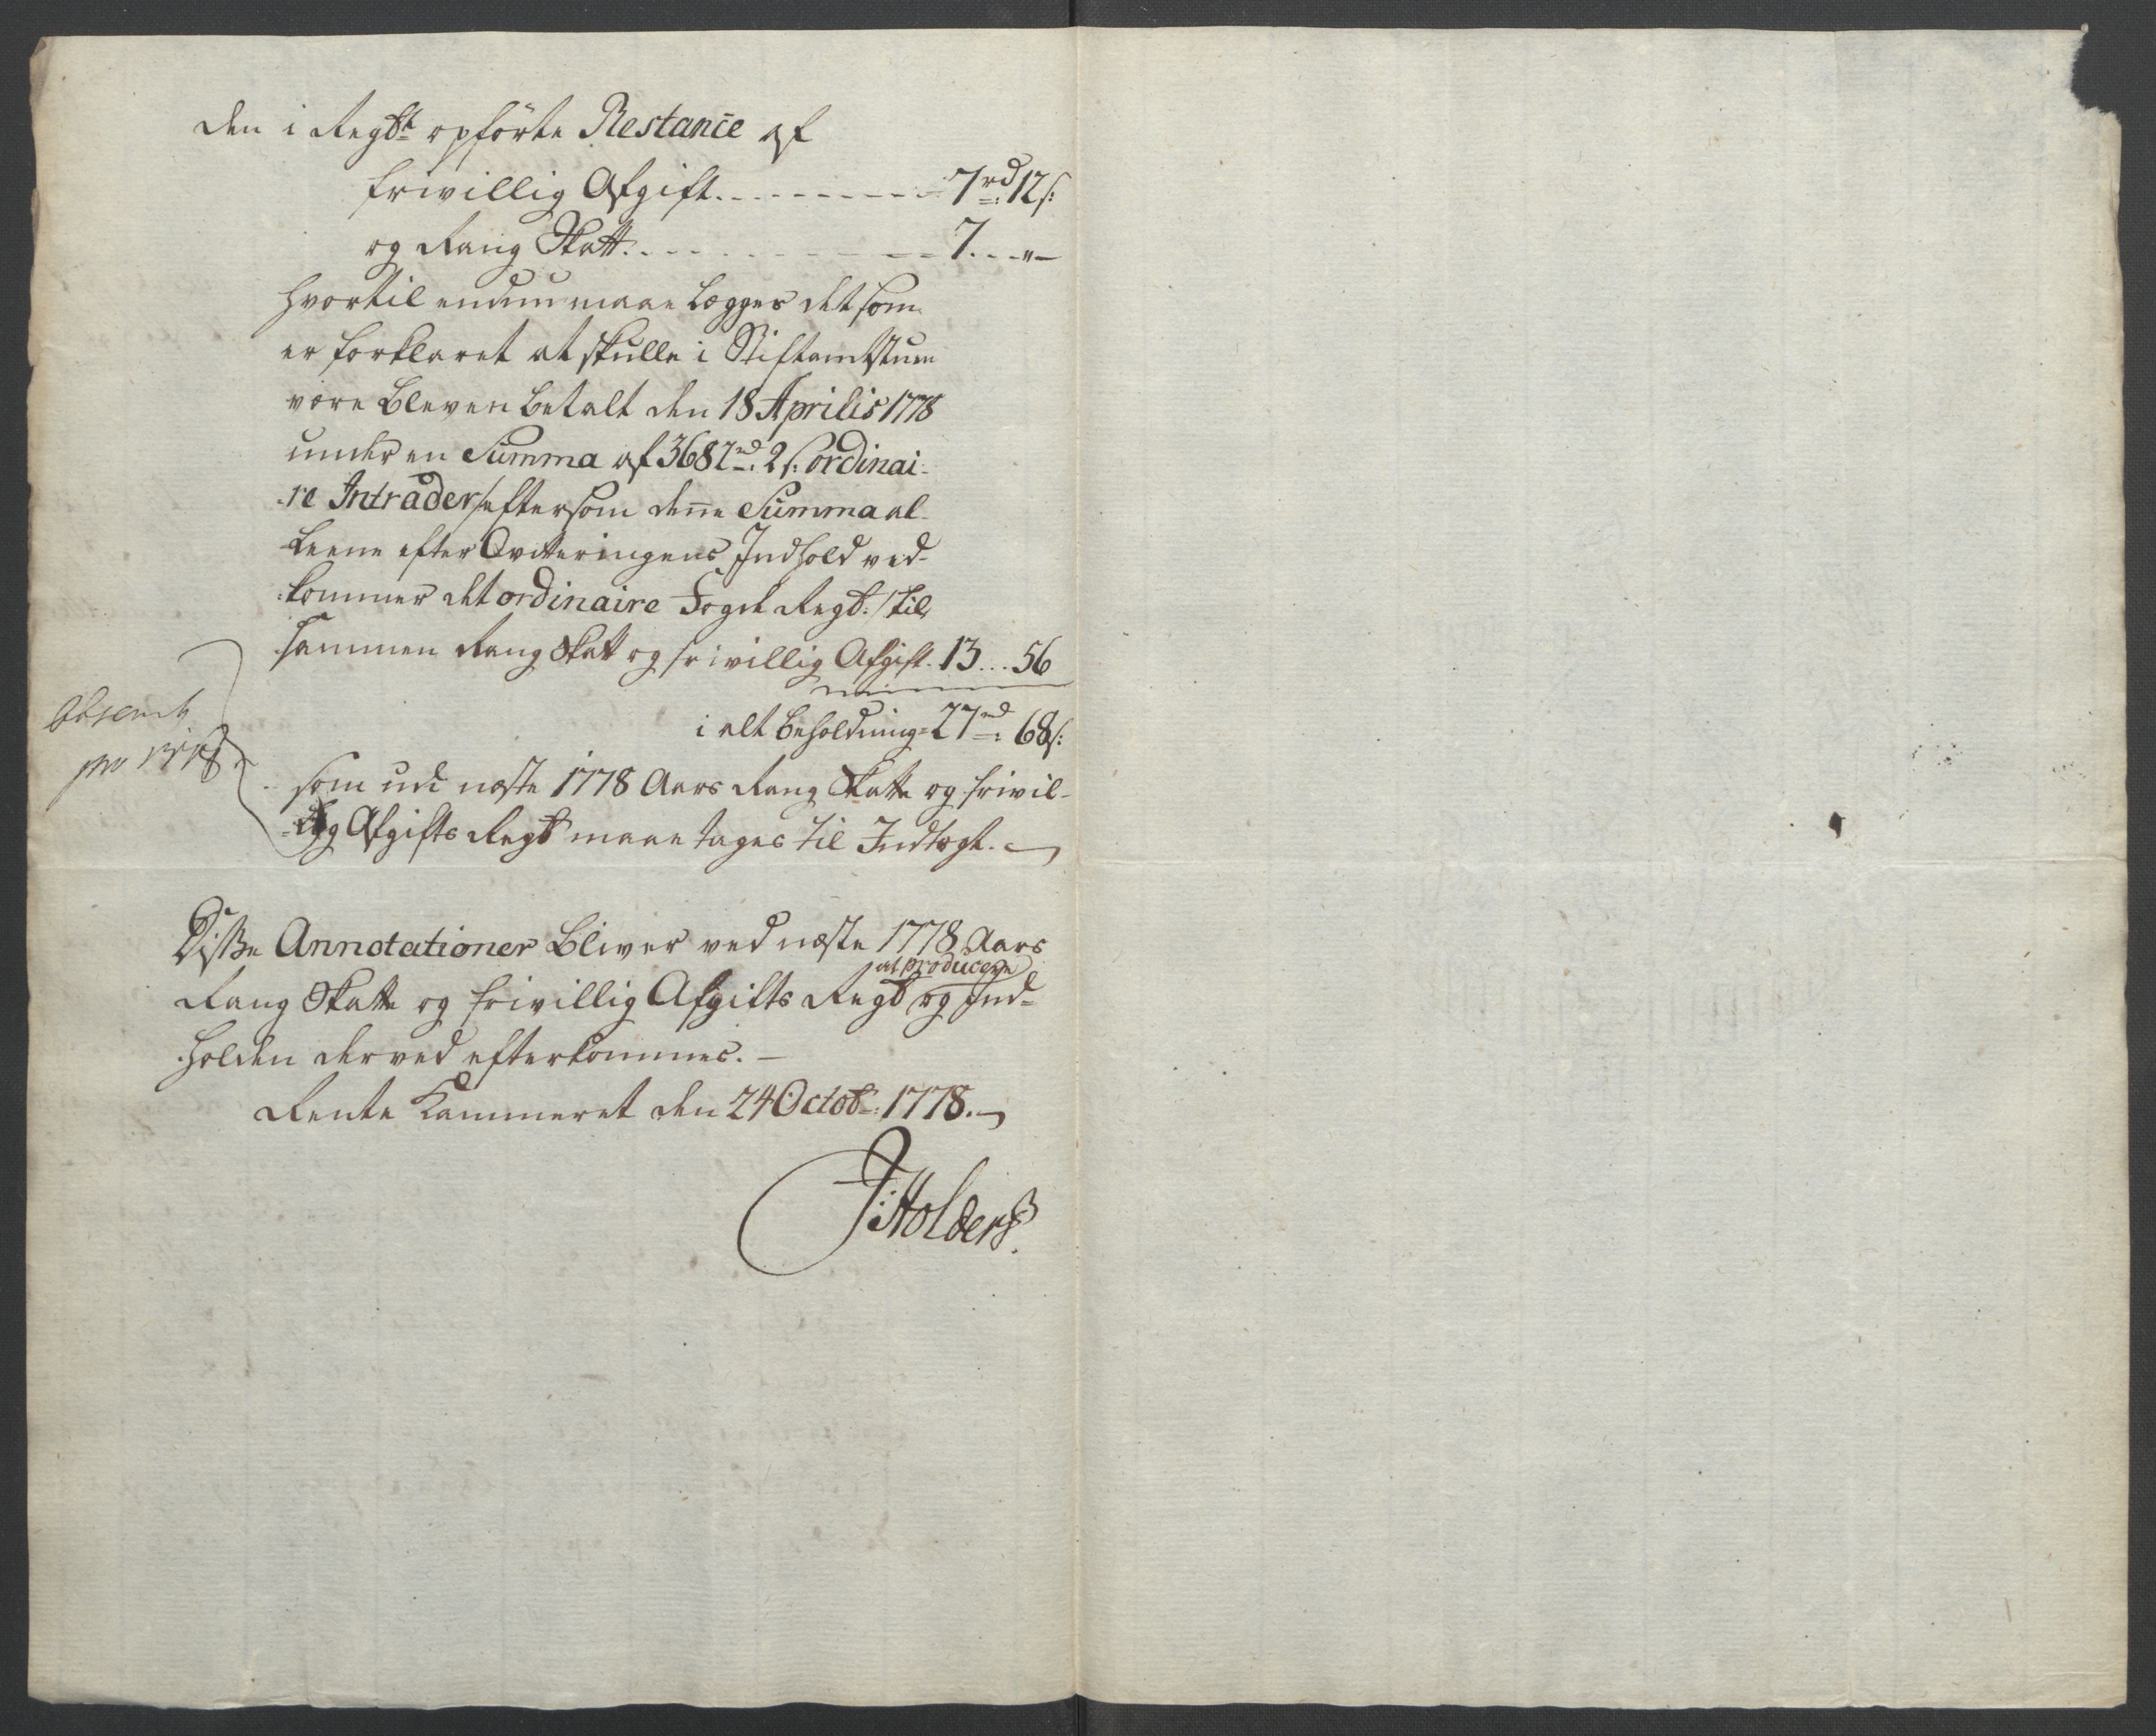 den i Regb:t opförte Restance af
frivillig Afgift. - - - - - - - - - 7rd: 12 s:
og Rang Skatt. - - - - - - - - - 7. - - " -
hvortil endnu maae lægges det som
er forklaret at skulle i Stiftamtstuen
være bleven betalt den 18 Aprilis 1778
under en Summa af 3682rd: 2 s: ordinai-
-re Intrader/: eftersom denne Summa al-
-leene efter Qvitteringens Indhold ved-
-kommer det ordinaire Foged Regb: / til
sammen Rang Skatt og frivillig Afgift. 13 . . . 56
i alt Beholdning = 27rd: 68 s:
Observeret
pro 1778
som udi næste 1778 Aars Rang Skatte og frivil-
-lig Afgifts Regb maae tages til Indtægt.
Disse Annotationer bliver ved næste 1778 Aars
at producere
Rang Skatte og frivillig Afgifts Regb og Ind-
-holden derved efterkommes. -
Rente Kammeret den 24 Octob: 1778.
J: Holders.